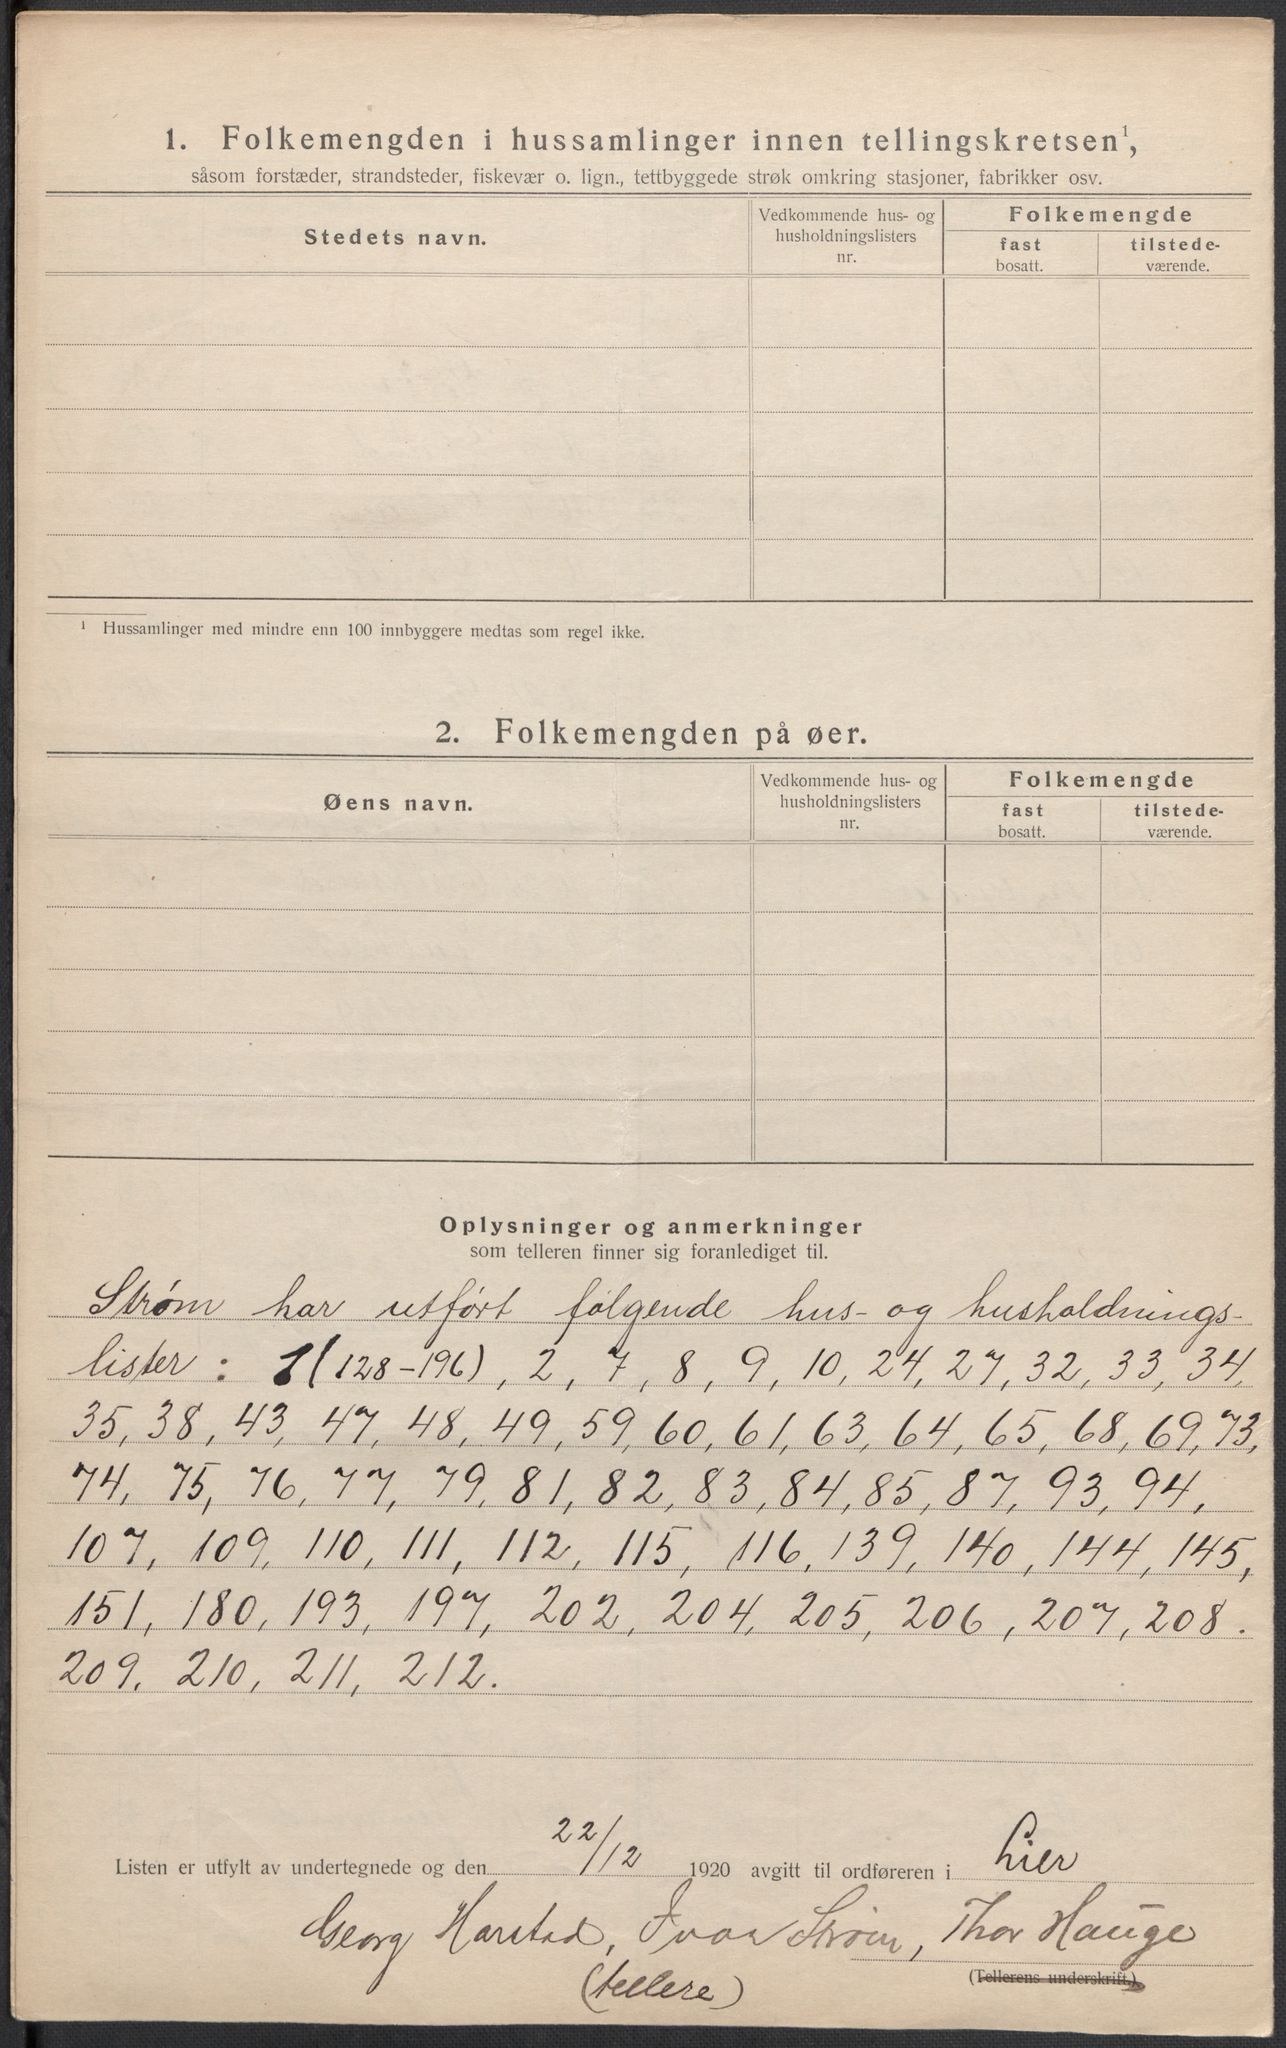 1. Folkemengden i hussamlinger innen tellingskretsen¹,
såsom forstæder, strandsteder, fiskevær o. lign., tettbyggede strøk omkring stasjoner, fabrikker osv.
Stedets navn.
Vedkommende hus- og
husholdningslisters
nr.
Folkemengde
fast
bosatt.
tilstede-
værende.
¹ Hussamlinger med mindre enn 100 innbyggere medtas som regel ikke.
2. Folkemengden på øer.
Øens navn.
Vedkommende hus- og
husholdningslisters
nr.
Folkemengde
fast
bosatt.
tilstede-
værende.
Oplysninger og anmerkninger
som telleren finner sig foranlediget til.
Strøm har utført følgende hus- og husholdnings-
lister: 1 (128-196), 2, 7, 8, 9, 10, 24, 27, 32, 33, 34,
35, 38, 43, 47, 48, 49, 59, 60, 61, 63, 64, 65, 68, 69, 73,
74, 75, 76, 77, 79, 81, 82, 83, 84, 85, 87, 93, 94,
107, 109, 110, 111, 112, 115, 116, 139, 140, 144, 145,
151, 180, 193, 197, 202, 204, 205, 206, 207, 208.
209, 210, 211, 212.
Listen er utfylt av undertegnede og den 22/12 1920 avgitt til ordføreren i Lier
Georg Harstad, Ivar Strøm, Thor Hauge
(Tellerens underskrift.)
(tellere)